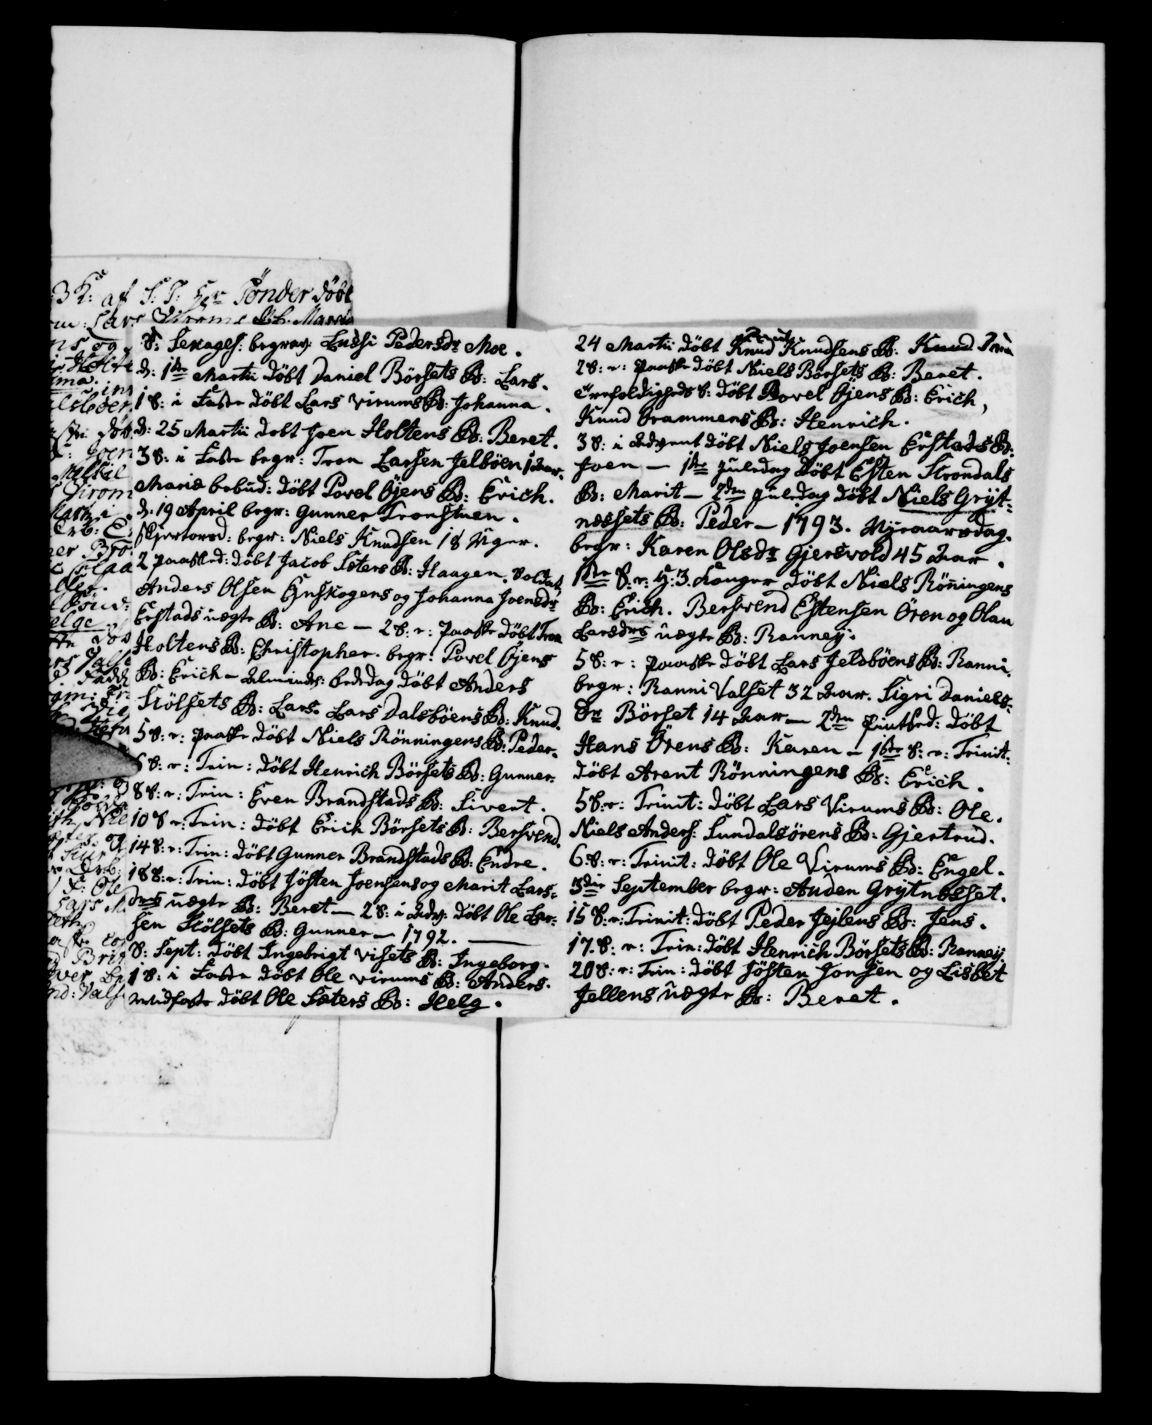 3 h: af S: T: Hr Tönder döbt
S: Sexages: begrav: Lussi Pedersdr Moe.
d: 1ste Martii döbt Daniel Börsets B: Lars.
1 S: i Faste döbt Lars Virums B: Johanna.
d: 25 Martii döbt Joen Holtens B: Beret.
3 S: i Faste begr: Tron Larsen Jelböen 1 Aar.
Mariæ bebud: döbt Povel Öjens B: Erich.
d: 19 April begr: Gunner Tronstuen.
Skjertorsd: begr: Niels Knudsen 18 Uger.
2 Paasked: döbt Jacob Sæters B: Haagen. Soldat
Anders Olsen Enskogens og Johanna Joensdr
Erstads uægte B: Ane — 2 S: r: Paaske döbt Tron
Holtens B: Christopher. begr: Povel Öjens
B: Erich — Almind: Bededag döbt Anders
Stölsets B: Lars. Lars Dalsböens B: Knud.
5 S: r: Paaske döbt Niels Rönningens B: Peder.
6 S: r: Trin: döbt Henrich Börsets B: Gunner.
8 S: r: Trin: Even Brandstads B: Sivert.
10 S: r: Trin: döbt Erich Börsets B: Bersvend.
14 S: r: Trin: döbt Gunner Brandstads B: Endre.
18 S: r: Trin: döbt Jösten Joensens og Marit Lars-
drs uægte B: Beret — 2 S: i Adv: döbt Ole Lar-
sen Stölsets B: Gunner — 1792.
S: Sept: döbt Ingebrigt Visets B: Ingeborg.
1 S: i Faste döbt Ole Virums B: Anders.
Midfaste döbt Ole Sæters B: Helg.
24 Martii döbt Knud Knudsens B: Knud
2 S: r: Paaske döbt Niels Börsets B: Beret.
Treefoldigheds S: döbt Povel Öjens B: Erich,
Knud Brammens B: Henrich.
3 S: i Advent döbt Niels Joensen Erstads B:
Joen — 1ste Juledag döbt Esten Strondals
B: Marit — 2den Juledag döbt Niels Gryt-
næssets B: Peder — 1793. Nyeaarsdag.
begr: Karen Olsdr Gjersvold 45 Aar.
1ste S: r: H: 3 Konger döbt Niels Röningens
B: Erich. Bersvend Estensen Ören og Olau
Larsdrs uægte B: Ranney.
5 S: r: Paaske döbt Lars Jelsböens B: Ranni.
begr: Ranni Valset 32 Aar. Sigri Daniels-
dr Börset 14 Aar — 2den Pintsed: döbt
Hans Örens B: Karen — 1ste S: r: Trinit:
döbt Arent Rönningens B: Erich.
5 S: r: Trinit: döbt Lars Virums B: Ole.
Niels Anders: Sundalsörens B: Gjertrud.
6 S: r: Trinit: döbt Ole Virums B: Engel.
3die September begr: Auden Grytnæset.
15 S: r: Trinit: döbt Peder Jejlens B: Jens.
17 S: r: Trin: döbt Henrich Börsets B: Ranney.
20 S: r: Trin: döbt Jösten Jonsen og Lisbet
Jellens uægte B: Beret.